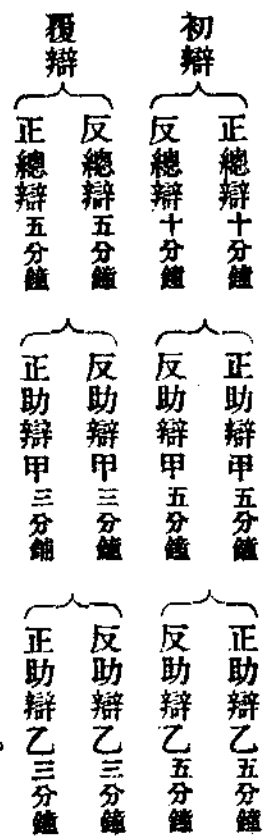 初辯
正總辯十分鐘
反總辯十分鐘
正助辯甲五分鐘
反助辯甲五分鐘
正助辯乙五分鐘
反助辯乙五分鐘
覆辯
反總辯五分鐘
正總辯五分鐘
反助辯甲三分鐘
正助辯甲三分鐘
反助辯乙三分鐘
正助辯乙三分鐘